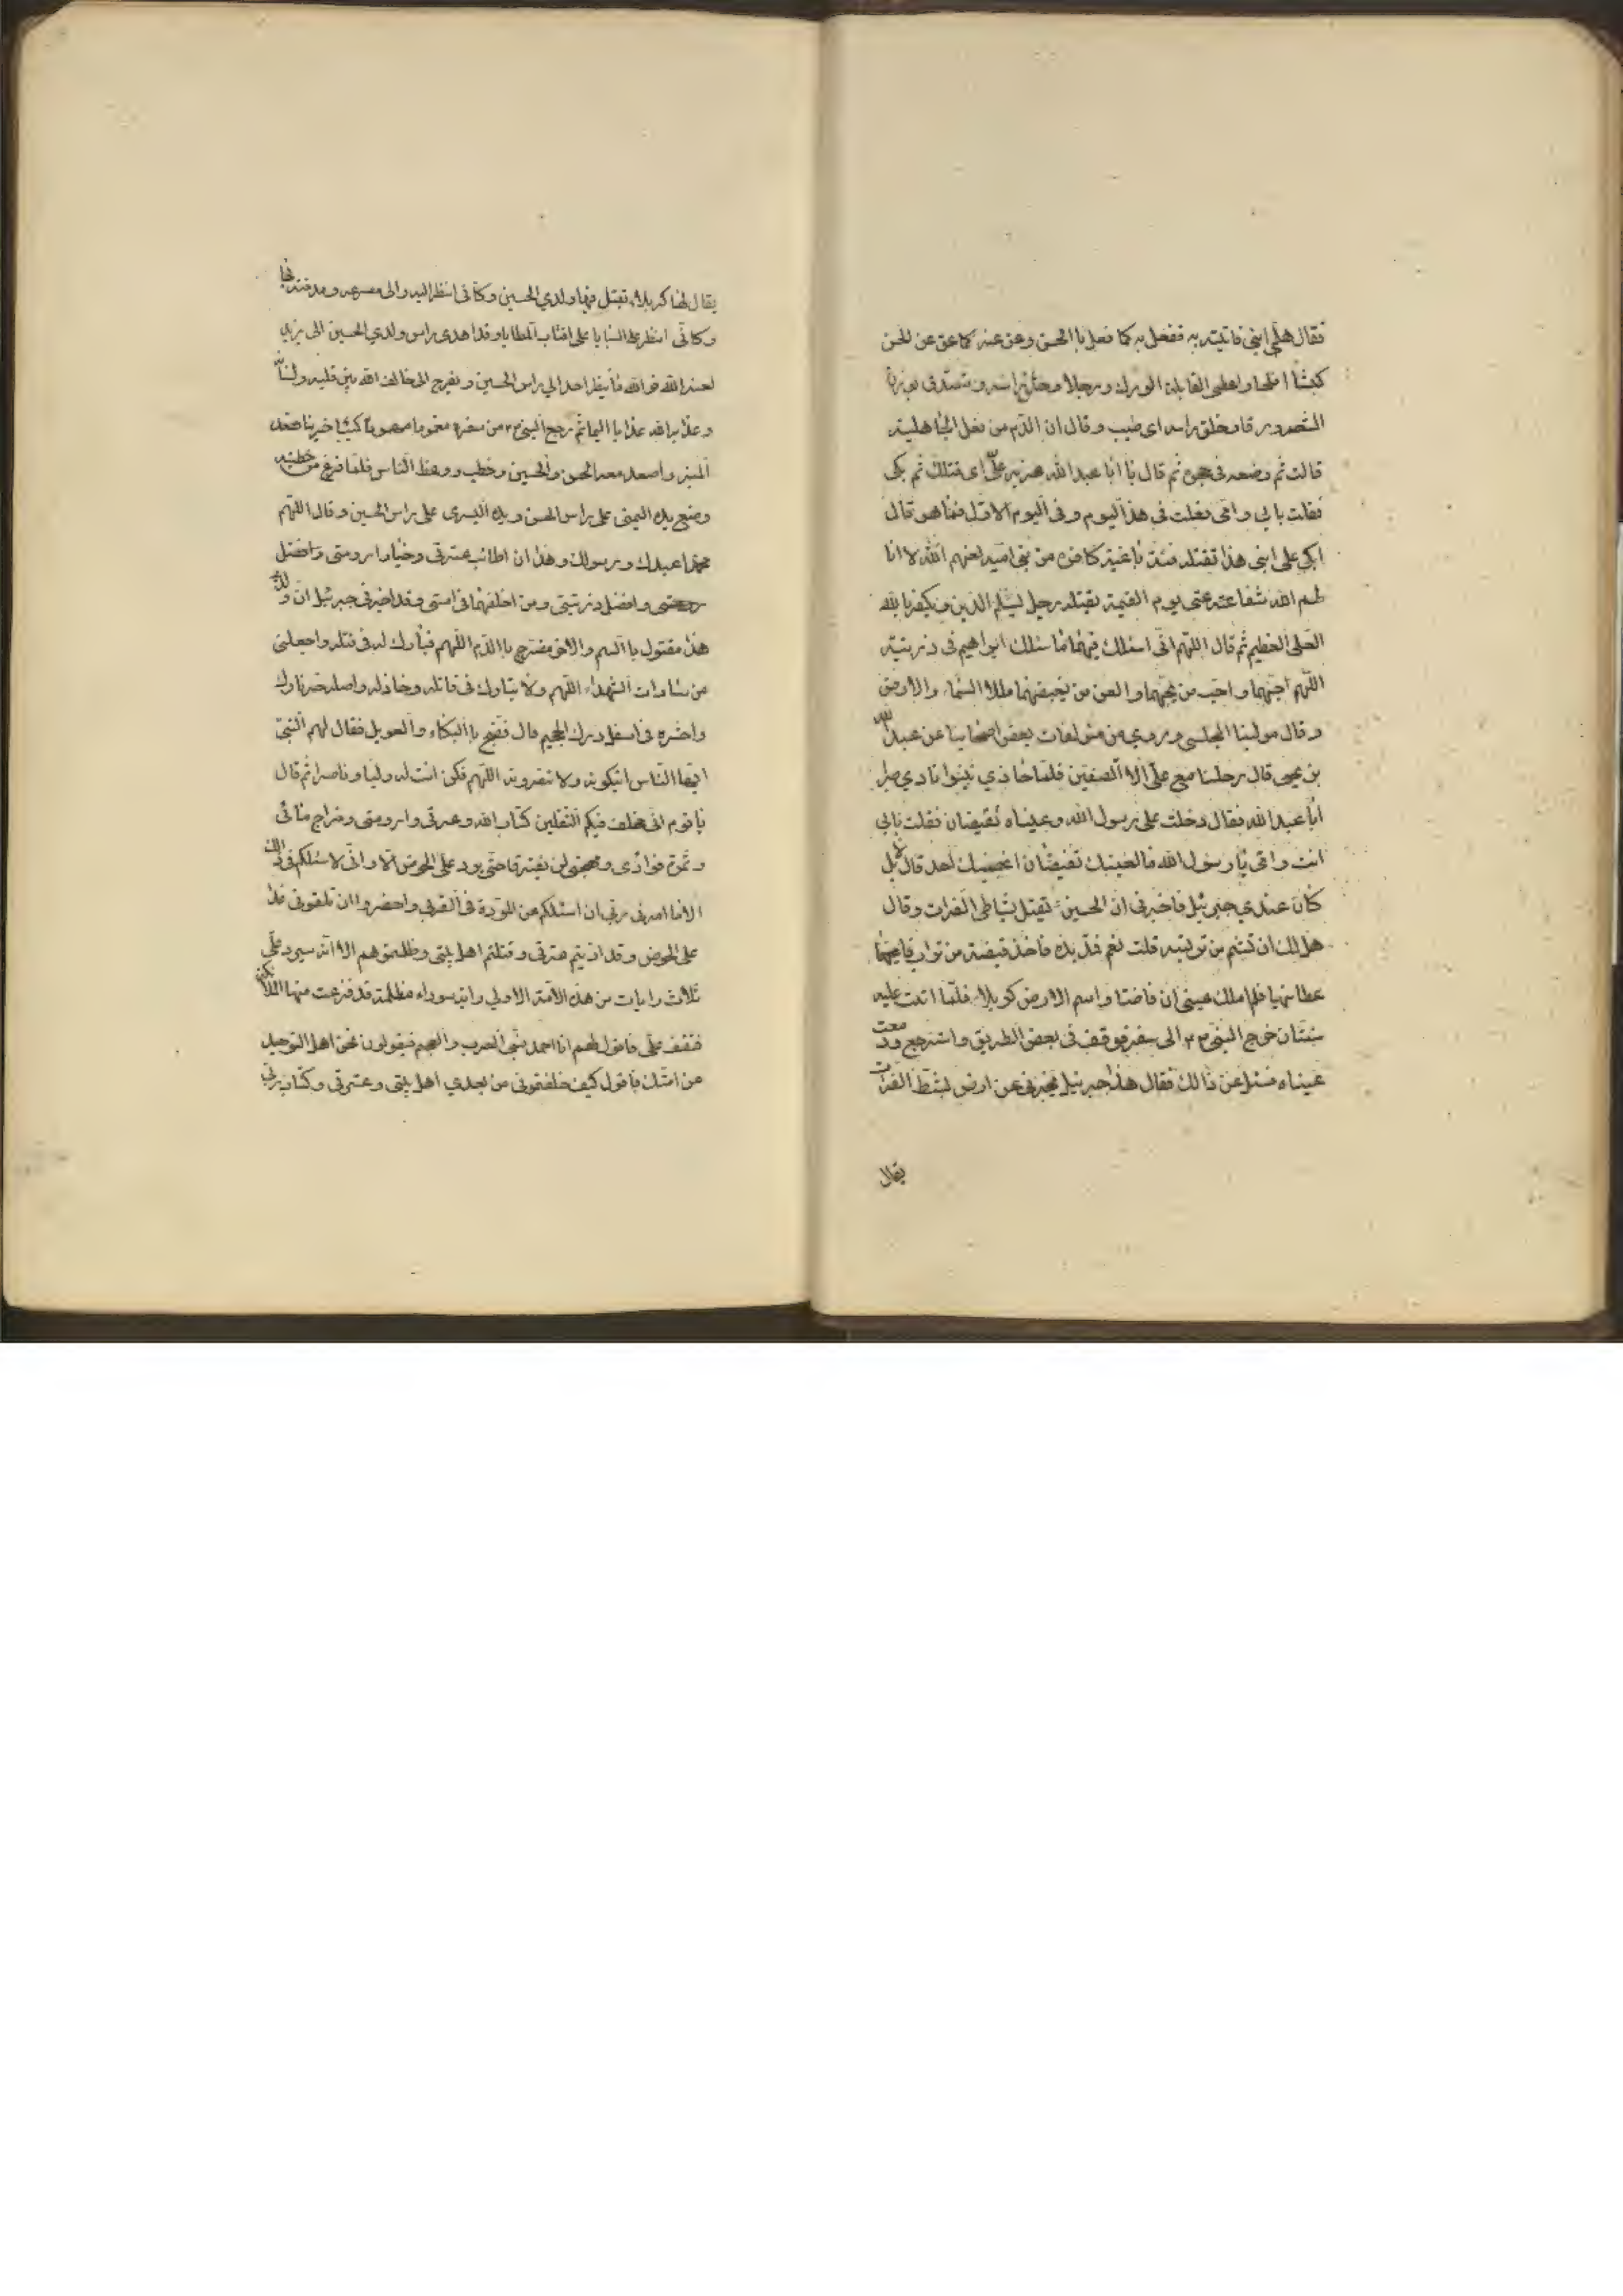 فقال هلمي ابني فاتيته به ففعل به كما فعل باالحسن وعق عنه كما عق عن الحسن
كبشا املحا واعطى القابلة الورك ورجلا وحلق راسه وتصدق بوزن
الشعر ورقا وخلق راسه اى طيب وقال ان الدم من فعل الجاهلية
قالت ثم وضعه فى حجره ثم قال يا ابا عبد الله عزيز علىّ اى قتلك ثم بكى
فقلت بابي وامى فعلت فى هذا اليوم وفى اليوم الاول فما هو قال
ابكى على ابنى هذا تقتله فئة باغية كافرة من بنى امية لعنهم الله لا انا
لهم الله شفاعتى يوم القيمة يقتله رجل يثلم الدين ويكفر بالله
العلى العظيم ثم قال اللهم انى اسئلك فيهما ما سئلك ابراهيم فى ذريته
اللهم احبهما واحب من يحبهما والعن من يبغضهما ملاء السماء والارض
وقال مولينا المجلسى وروي من مؤلفات بعض اصحابنا عن عبد الله
بن يحيى قال رحلنا مع علىّ الى الصفين فلما حاذي نينوا نادي صبرا
ابا عبد الله فقال دخلت على رسول الله وعيناه تفيضان فقلت بابي
انت وامى يا رسول الله ما لعينيك تفيضان اغضبك احد قال لا بل
كان عندي جبرئيل فاخبرنى ان الحسين يقتل بشاطى الفرات وقال
هل لك ان تشم من تربته قلت نعم فمد يده فاخذ قبضة من تراب
فاعطانيها فلم املك عينى ان فاضتا واسم الارض كربلا فلما اتت عليه
سنتان خرج النبى الى سفر فوقف فى بعض الطريق واسترجع ودمعت
عيناه فسئل عن ذالك فقال هذا جبرئيل يخبرنى عن ارض بشط الفرات
يقال
يقال لها كربلا تقتل فيها ولدي الحسين وكانى انظر اليه والى مصرعه ومدفنه بها
وكانى انظر على السبايا على اقتاب المطايا وقد اهدى راس ولدي الحسين الى يزيد
لعنه الله فو الله ما ينظر احد الى راس الحسين ويفرح الا خالف الله بين قلبه ولسانه
وعذبه الله عذابا اليما ثم رجع النبى من سفره مغموما مهموما كئيبا حزينا فصعد
المنبر واصعد معه الحسن والحسين وخطب ووعظ الناس فلما فرغ من خطبته
وضع يده اليمنى على راس الحسن ويده اليسرى على راس الحسين وقال اللهم
محمدا عبدك ورسولك وهذان اطائب عترتى وخيار ارومتى وافضل
وافضل ذريتى ومن اخلفهما فى امتى وقد اخبرنى جبرئيل ان ولدي
هذا مقتول باالسم والاخر مضرج باالدم اللهم فبارك له فى قتله واجعلنى
من سادات الشهداء اللهم ولا تبارك فى قاتله وخاذله واصله حر نارك
واحشره فى اسفل درك الجحيم قال فضج باالبكاء والعويل فقال لهم النبى
ايها الناس اتبكونه ولا تنصرونه اللهم فكن انت له وليا وناصرا ثم قال
يا قوم انى مخلف فيكم الثقلين كتاب الله وعترتى وارومتى ومزاج مائى
وثمرة فوادى ومهجتى لن يفترقا حتى يردا على الحوض الا وانى لا اسئلكم فى ذالك
الا ما امرنى ربى ان اسئلكم عن المودة فى القربى واحضروا ان تلقونى غدا
على الحوض وقد اذيتم عترتى وقتلتم اهل بيتى وظلمتوهم الا انه سيرد علىّ
ثلاث رايات من هذه الامة الاولى راية سوداء مظلمة قد فزعت منها الملائكة
فتقف على فاقول لهم انا احمد نبى العرب والعجم فيقولون نحن اهل التوحيد
من امتك فاقول كيف خلفتمونى من بعدي اهل بيتى وعترتى وكتاب ربى